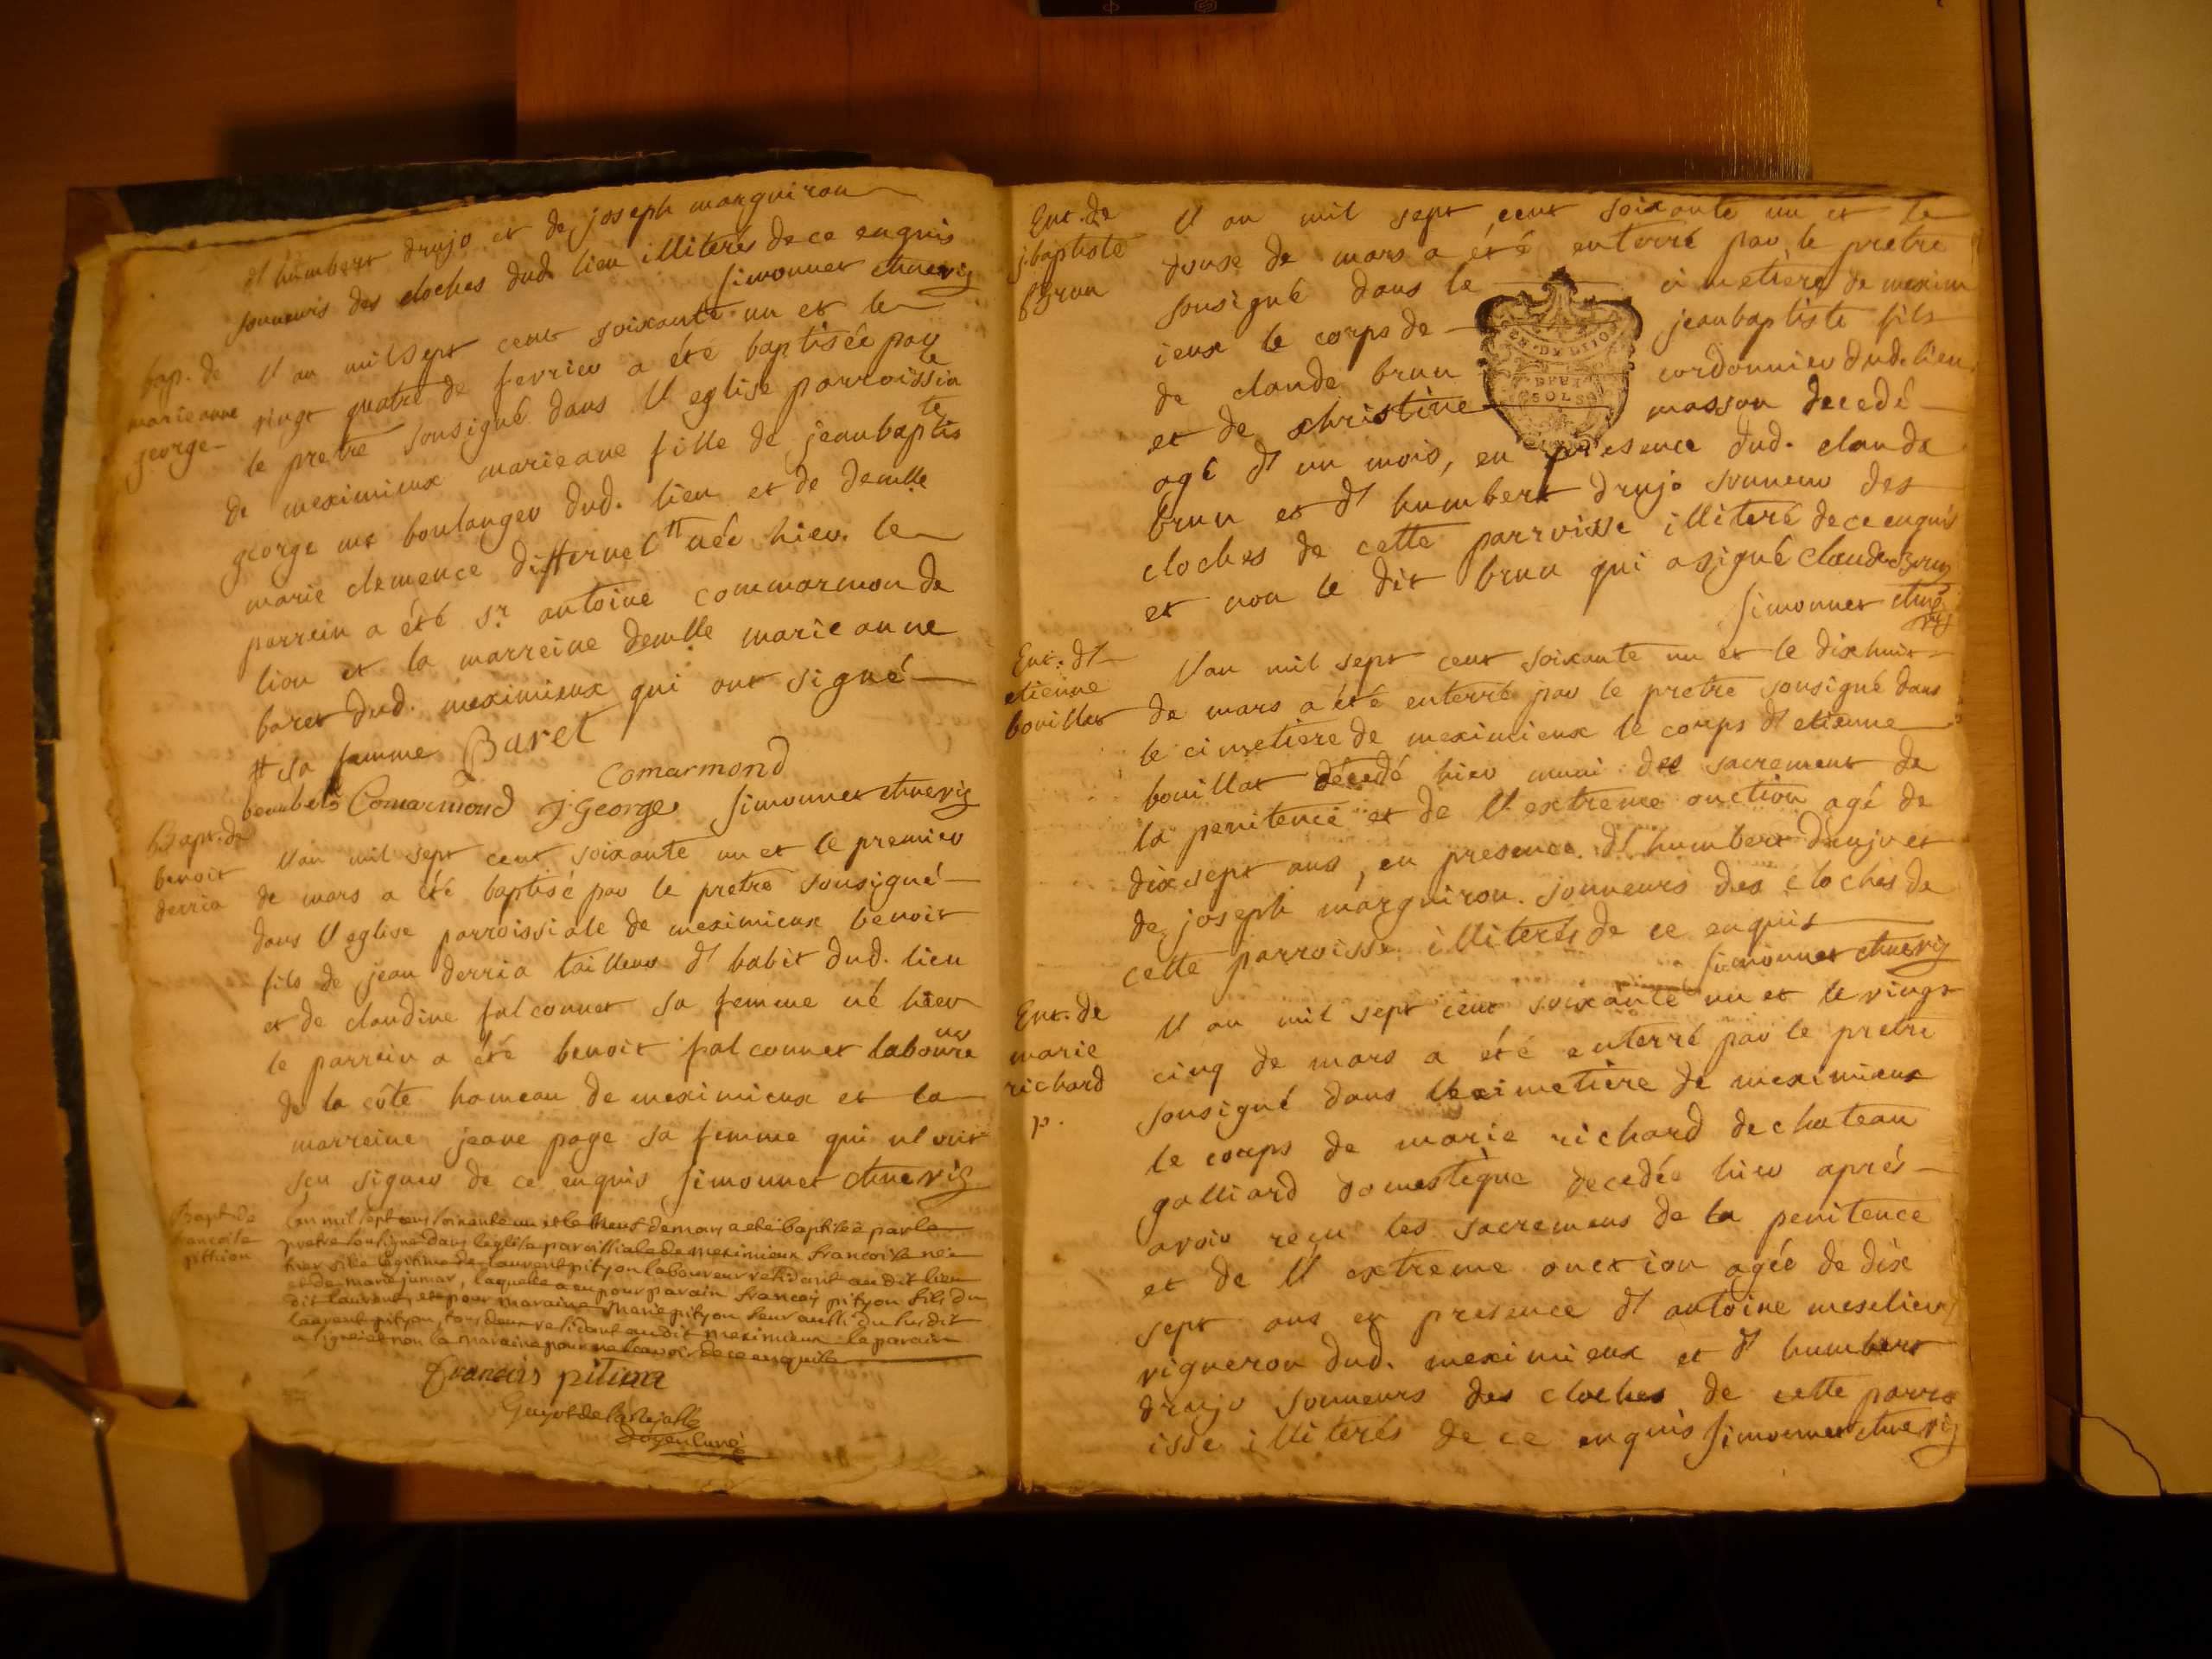 d'humbert drujo et de joseph marguiron
sonneurs des cloches dud. lieu illiterés de ce enquis
simonnet
bap. de
marieanne
george
l'an mil sept cent soixante un et le
vingt quatre de fevrier a été baptisée par
le pretre sousigné dans l'eglise parroissia
le
de meximieux marieane fille de jean baptis
te
george me boulanger dud. lieu et de demlle
marie clemence differnel # née hier. le
parrein a été sr. antoine commarmon de
lion et la marreine demlle marieanne
baret dud. meximieux qui ont signé
# sa femme Baret
Comarmond
Comarmond J. George simonnet
Bapt. de
benoit
derria
l'an mil sept cent soixante un et le premier
de mars a été baptisé par le pretre sousigné
dans l'eglise parroissiale de meximieux benoit
fils de jean derria tailleur d'habit dud. lieu
et de claudine falconnet sa femme né hier
le parrein a été benoit falconnet laboure
ur
de la côte hameau de meximieux et la
marreine jeane page sa femme qui n'ont
sçu signer de ce enquis simonnet
Bapt. de
francoise
pithion
l'an mil sept cent soixante un et le neuf de mars a eté baptisée par le
pretre sousigné dans l'eglise paroissiale de meximieux francoise née
hier fille legitime de laurent pityon laboureur residant au dit lieu
et de marie jumar, laquelle a eu pour parain francois pityon fils du
dit laurent, et pour maraine marie pityon seur aussi du susdit
laurent pityon, tous deux residant au dit meximieux le parain
a signé et non la maraine pour ne scavoir de ce enquise
francois pition
Guyot de la
doyen curé
Ent. de
j.baptiste
Brun
l'an mil sept cent soixante un et le
douse de mars a été enterré par le pretre
sousigné dans le cimetière de mexim
ieux le corps de jean baptiste fils
de claude brun cordonnier dud. lieu
et de christine masson decedé
agé d'un mois, en presence dud. claude
brun et d'humbert drujo sonneur des
cloches de cette parroisse illiteré de ce enquis
et non le dit brun qui a signé claude Brun
simonnet
Ent. d'
etienne
bouillat
l'an mil sept cent soixante un et le dix huit
de mars a été enterré par le pretre sousigné dans
le cimetiere de meximieux le corps d'etienne
bouillat décédé hier muni des sacrement de
la penitence et de l'extreme onction agé de
dix sept ans, en presence d'humbert drujo et
de joseph marguiron sonneurs des cloches de
cette parroisse illiterés de ce enquis
simonnet
Ent. de
marie
richard
p.
l'an mil sept cent soixante un et le vingt
cinq de mars a été enterré par le pretre
sousigné dans le cimetière de meximieux
le corps de marie richard de chateau
galliard domestique decedée hier aprés
avoir reçu les sacremens de la penitence
et de l'extreme onction agée de dix
sept ans en presence d'antoine meselier
vigneron dud. meximieux et d'humbert
drujo sonneurs des cloches de cette parro
isse illiterés de ce enquis simonnet